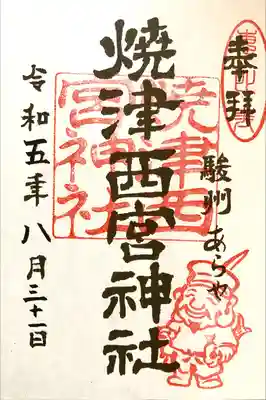 奉拝
駿州 あらや
焼津西宮神社
令和五年八月三十一日
焼津西
宮神社